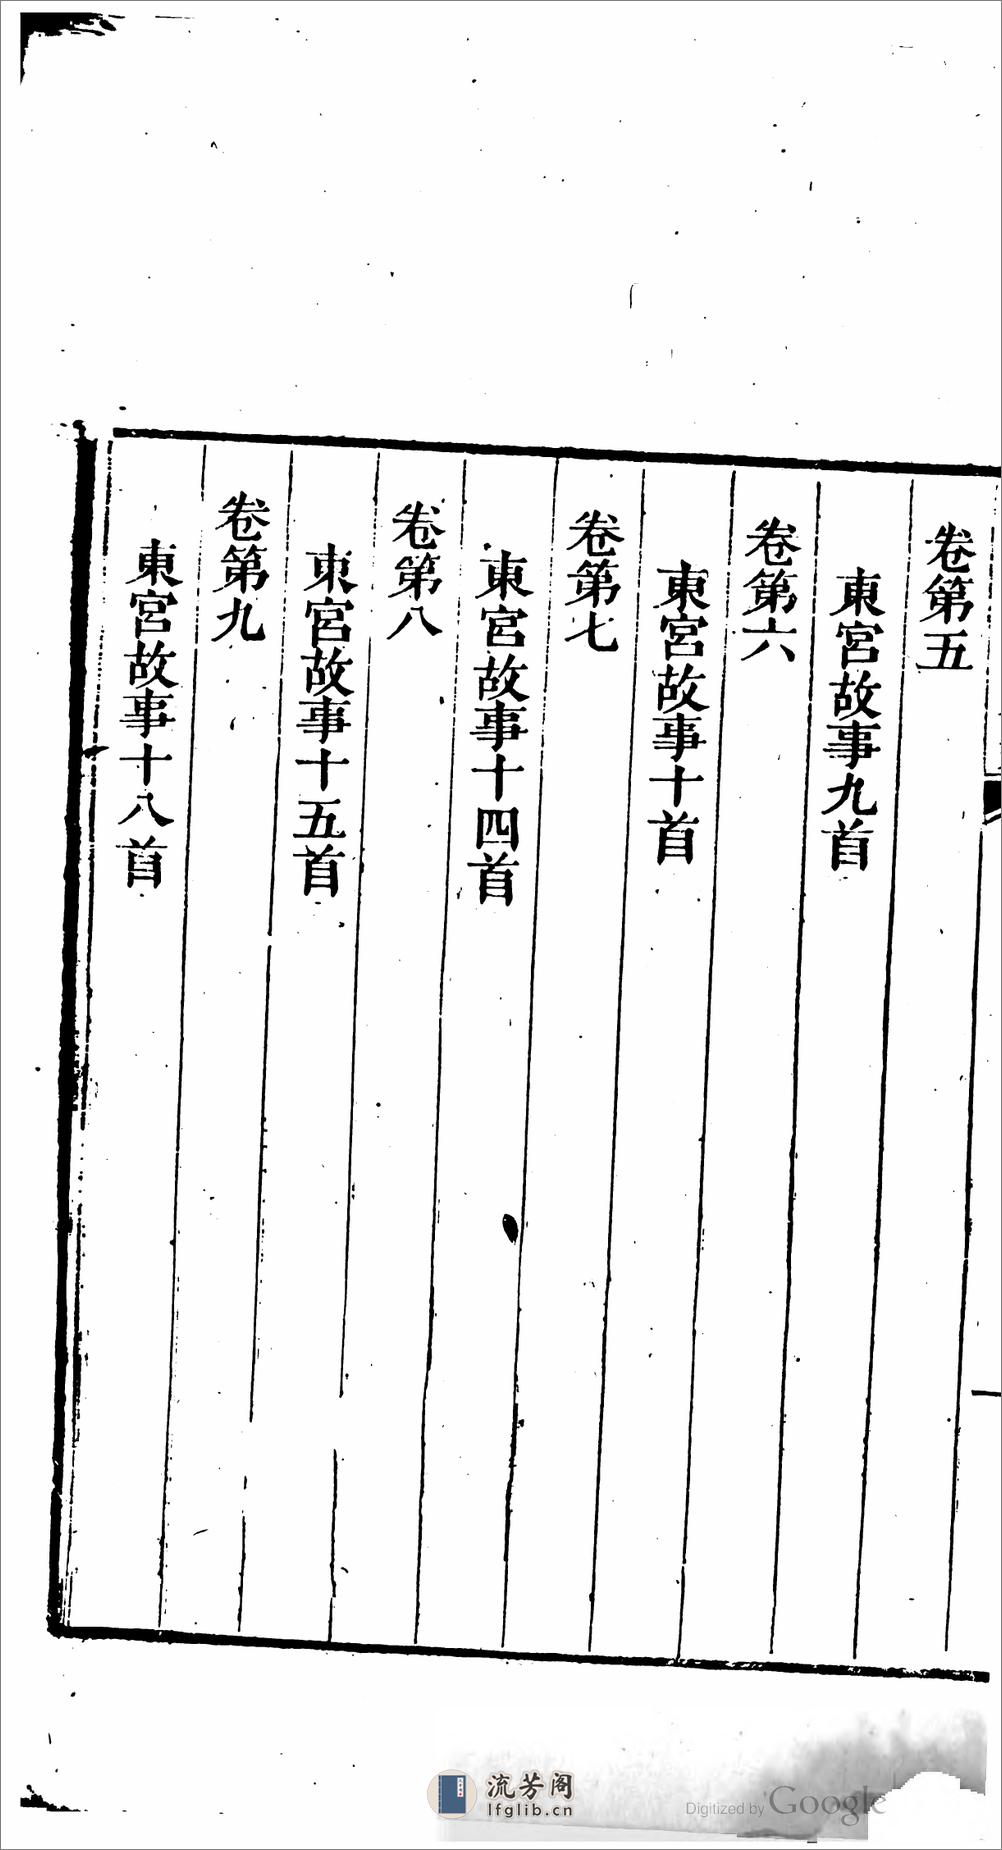 卷第五
東宮故事九首
卷第六
東宮故事十首
卷第七
東宮故事十四首
卷第八
東宮故事十五首
卷第九
東宮故事十八首
流芳阁
lfglib.cn
Digitized by Google